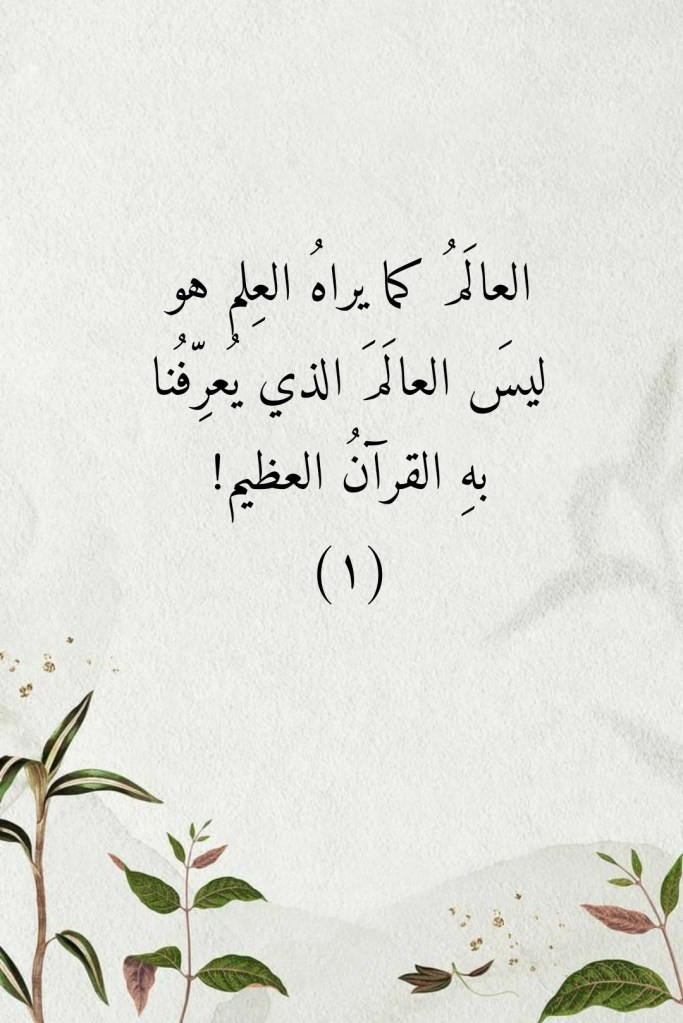 العالَمُ كما يراهُ العِلم هو
ليسَ العالَمَ الذي يُعرِّفُنا
بهِ القرآنُ العظيم!
(١)